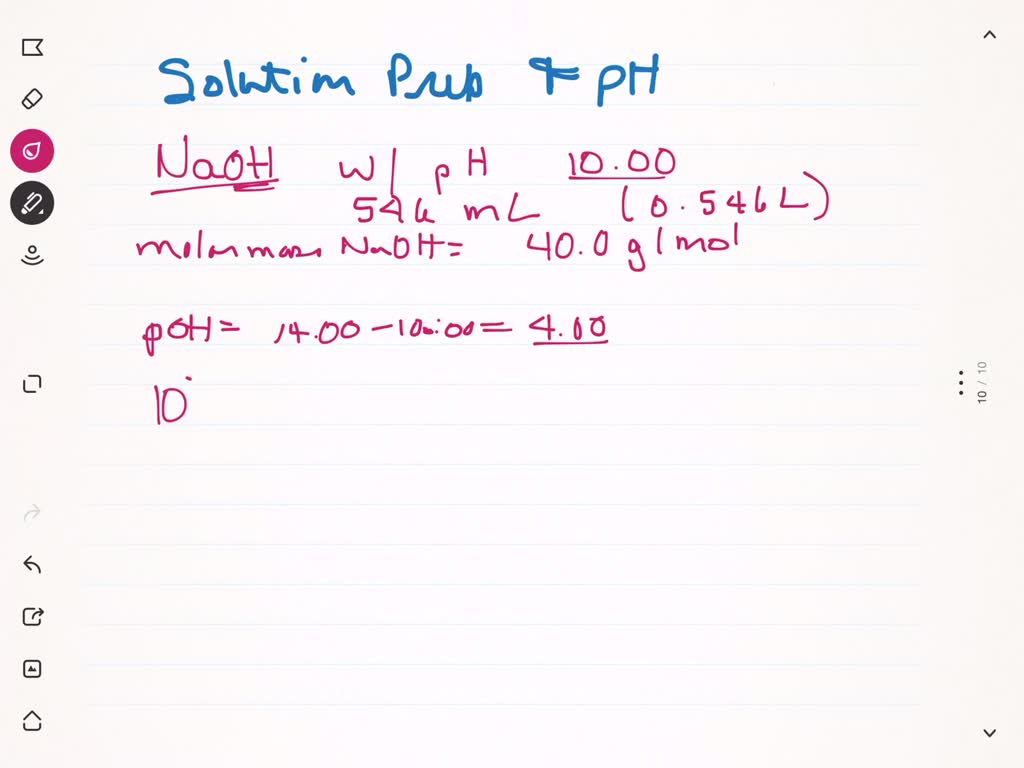 Solution Prep & pH
NaOH w/ pH 10.00
546 mL (0.546 L)
molar mass NaOH = 40.0 g/mol
pOH = 14.00 - 10.00 = 4.00
10
10 / 10